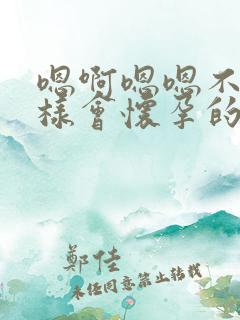 嗯啊嗯嗯不
樣會懷孕的
鄭佳
未经同意禁止转载